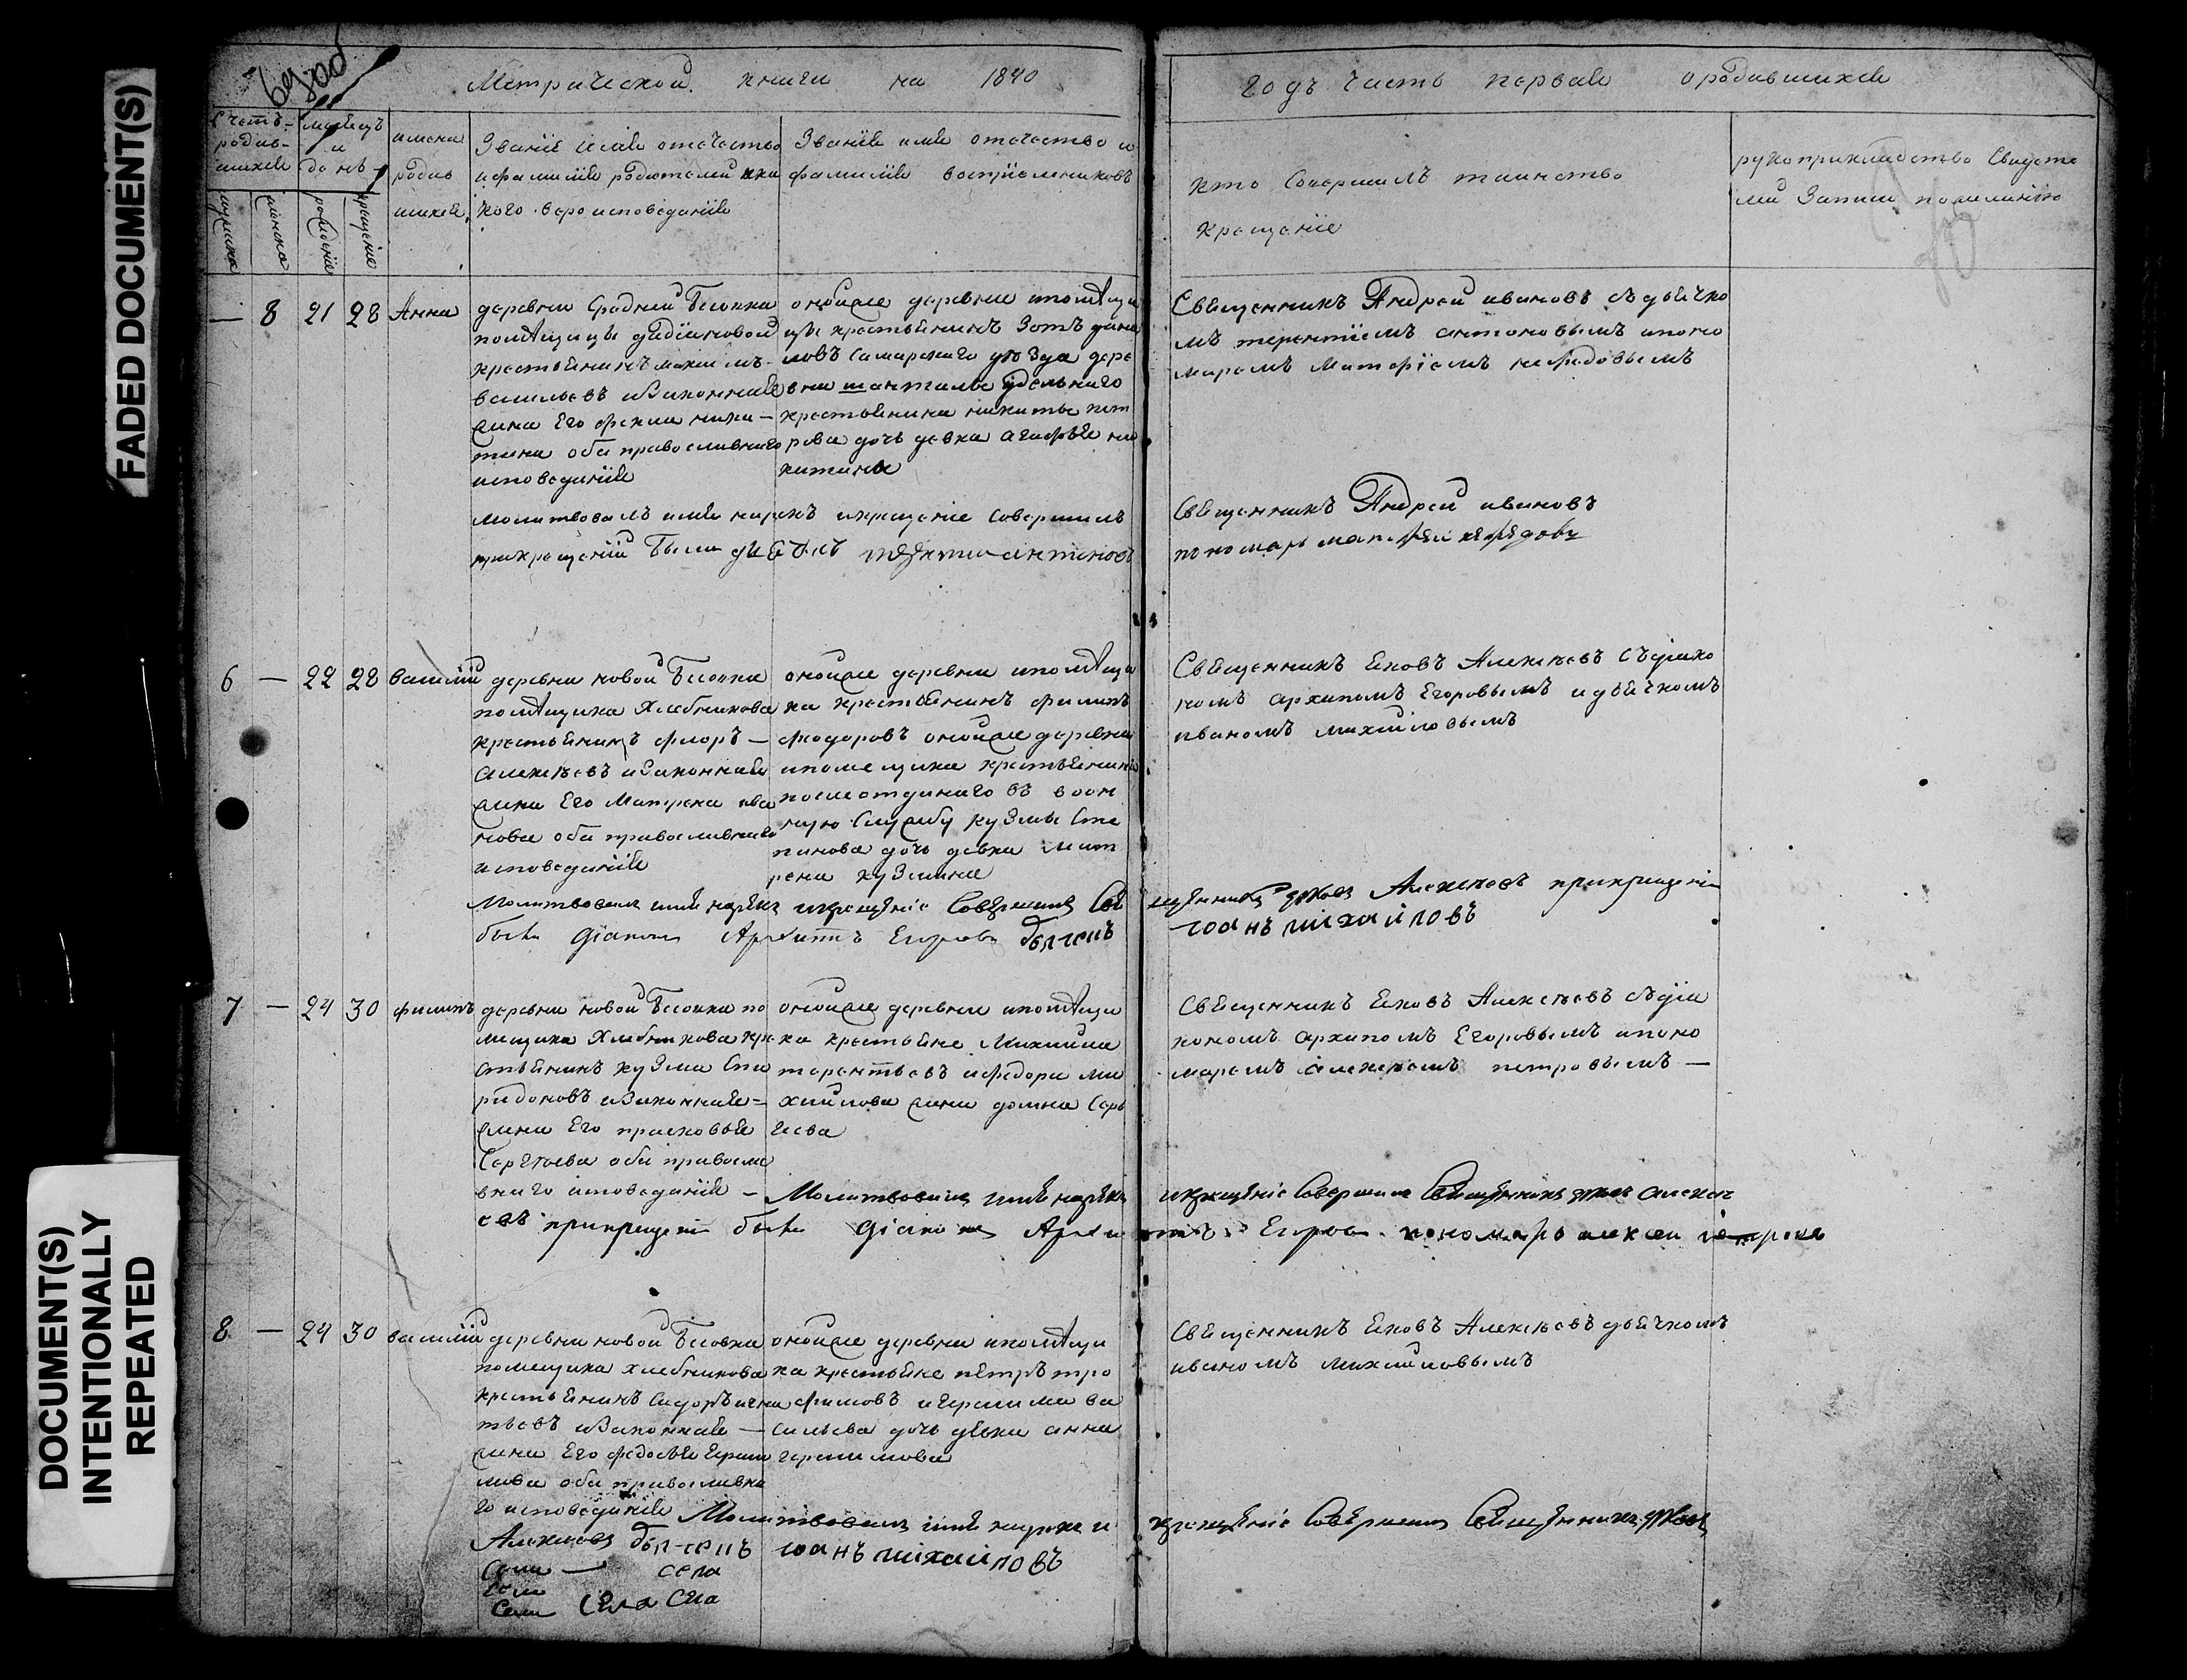 FADED DOCUMENT(S)
DOCUMENT(S)
INTENTIONALLY
REPEATED
Метрической книги на 1840
годъ часть первая о родившихся
Счетъ родив-шихся
месяцъ и день
имена родившихся
мужска
женска
рождение
крещение
Звание имя отечество
и фамилия родителей и ка
кого вероисповедания
Звание имя отечество и
фамилия восприемниковъ
кто совершилъ таинство
крещение
рукоприкладство свидете
лей записи
— 8 21 28 Анна
деревни Средней Бесовки
помещицы
крестьянинъ Максимъ
васильевъ и законная
жена Его
оба православнаго
исповедания
оной же деревни и помещи
цы крестьянинъ Зотъ дани
ловъ Самарского уезда дере
вни шантала удельнаго
крестьянина никиты пет
рова дочь девка агафья ни
китина
Священникъ Андрей ивановъ съ дьячко
мъ терентiемъ антоновымъ и поно
маремъ Матфiемъ нефедовымъ
Молитвовалъ имя нарекъ и крещенiе совершилъ
Священникъ Андрей ивановъ
при крещенiи были антоновъ
пономарь матфей нефедовъ
6 — 22 28 василiй
деревни новой Бесовки
помещика Хлебникова
крестьянинъ флоръ —
алексеевъ и законная
жена Его Матрена ива
нова оба православнаго
исповеданiя
оной же деревни и помещи
ка крестьянинъ филипъ
феодоровъ оной же деревни
и помещика крестьянина
после отданаго въ воен
ную службу кузмы Сте
панова дочь девка мат
рена кузмина
Священникъ Еяковъ Алексеевъ съ дiако
номъ архипомъ Егоровымъ и дьячкомъ
иваномъ михайловымъ
Молитвовалъ имя нарекъ и крещенiе Совершилъ Свя
щенникъ Алексеевъ при крещенiи
были дiаконъ Архипъ Егоровъ дьячекъ
iоанъ михайловъ
7 — 24 30 филипъ
деревни новой Бесовки по
мещика Хлебникова кре
стьянинъ кузма Спи
ридоновъ и законная —
жена Его прасковья
Сергеева оба правосла
внаго исповеданiя —
оной же деревни и помещи
ка крестьяне Михайла
терентьевъ и федора ми
хайлова жена домна Серъ
геева
Священникъ Еяковъ Алексеевъ съ дiа
кономъ архипомъ Егоровымъ и поно
маремъ алексеемъ петровымъ —
Молитвовалъ имя нарекъ
и крещенiе Совершилъ Священникъ
евъ при крещенiи были дiаконъ Архи
пъ Егоровъ. пономарь алексей петровъ
8 — 24 30 василiй
деревни новой Бесовки
помещика хлебникова
крестьянинъ Сидоръ игна
тьевъ и законная —
жена Его федосья Гераси
мова оба православна
го исповеданiя
оной же деревни и помещи
ка крестьяне пётръ тро
фимовъ и герасима ва
сильева дочь девка анна
герасимова
Священникъ Еяковъ Алексеевъ дьячкомъ
иваномъ михайловымъ
Молитвовалъ имя нарекъ и
крещенiе Совершилъ Священникъ
Алексеевъ дьячекъ iоанъ михайловъ
села
села